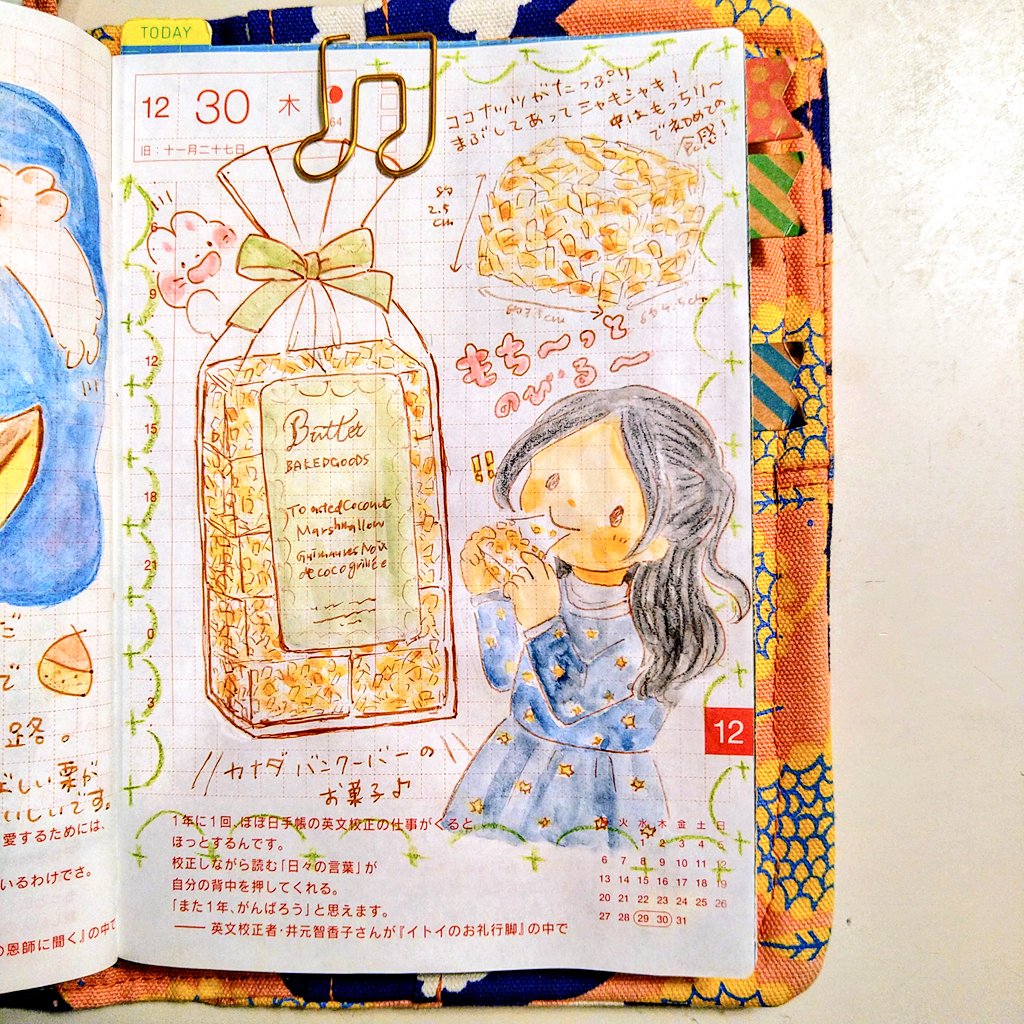 TODAY
12 30 木
64
旧：十一月二十七日
ココナッツがたっぷり
まぶしてあってシャキシャキ！
中はもっちり〜
で初めての
食感！
約
2.5
cm
もち〜っと
のびる〜
!!
Butter
BAKEDGOODS
Toasted Coconut
Marshmallow
Guimauves Noix
de coco grillée
6
9
12
15
18
21
0
3
カナダ バンクーバーの
お菓子♪
12
1年に1回、ほぼ日手帳の英文校正の仕事がくると、
ほっとするんです。
校正しながら読む「日々の言葉」が
自分の背中を押してくれる。
「また1年、がんばろう」と思えます。
―― 英文校正者・井元智香子さんが『イトイのお礼行脚』の中で
火 水 木 金 土 日
1 2 3 4 5
6 7 8 9 10 11 12
13 14 15 16 17 18 19
20 21 22 23 24 25 26
27 28 29 30 31
だ
で
路。
しい栗が
いしいです。
愛するためには、
いるわけでさ。
の恩師に聞く』の中で